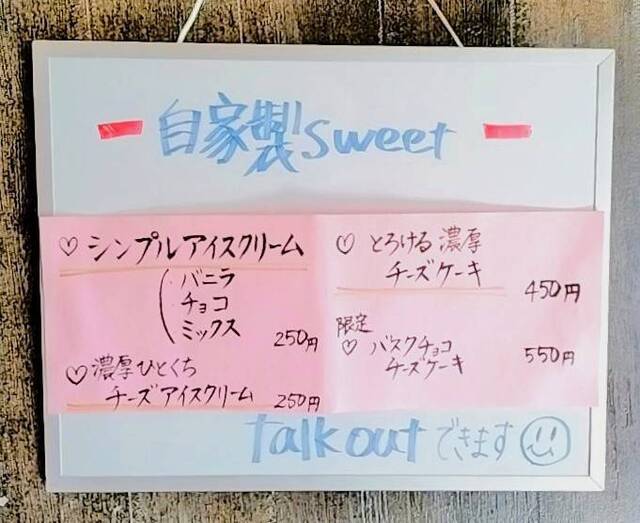 自家製sweet
♡ シンプルアイスクリーム
バニラ
チョコ
ミックス
250円
♡ 濃厚ひとくち
チーズアイスクリーム 250円
♡ とろける濃厚
チーズケーキ
450円
限定
♡ バスクチョコ
チーズケーキ
550円
talk outできます